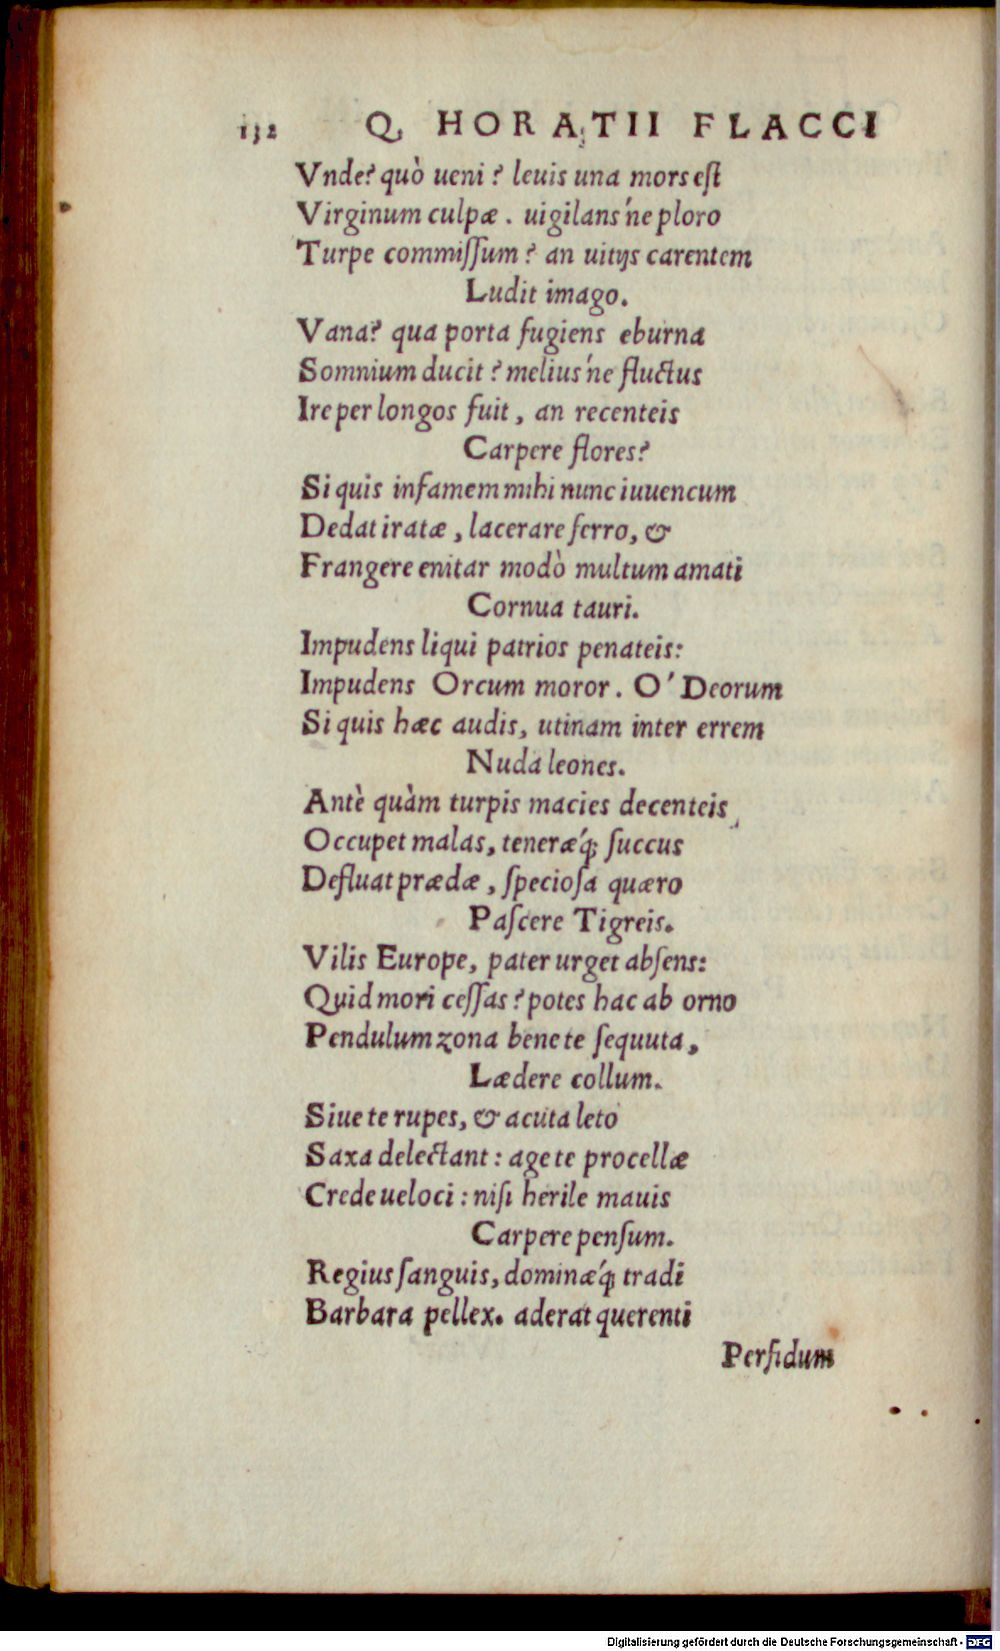 132 Q. HORATII FLACCI
Vnde? quò ueni? leuis una mors est
Virginum culpæ. uigilans'ne ploro
Turpe commissum? an uitijs carentem
Ludit imago.
Vana? qua porta fugiens eburna
Somnium ducit? melius'ne fluctus
Ire per longos fuit, an recenteis
Carpere flores?
Si quis infamem mihi nunc iuuencum
Dedat iratæ, lacerare ferro, &
Frangere enitar modò multum amati
Cornua tauri.
Impudens liqui patrios penateis:
Impudens Orcum moror. O' Deorum
Si quis hæc audis, utinam inter errem
Nuda leones.
Antè quàm turpis macies decenteis
Occupet malas, teneræ'q; succus
Defluat prædæ, speciosa quæro
Pascere Tigreis.
Vilis Europe, pater urget absens:
Quid mori cessas? potes hac ab orno
Pendulum zona bene te sequuta,
Lædere collum.
Siue te rupes, & acuta leto
Saxa delectant: age te procellæ
Crede ueloci: nisi herile mauis
Carpere pensum.
Regius sanguis, dominæ'q; tradi
Barbara pellex. aderat querenti
Perfidum
Digitalisierung gefördert durch die Deutsche Forschungsgemeinschaft - DFG